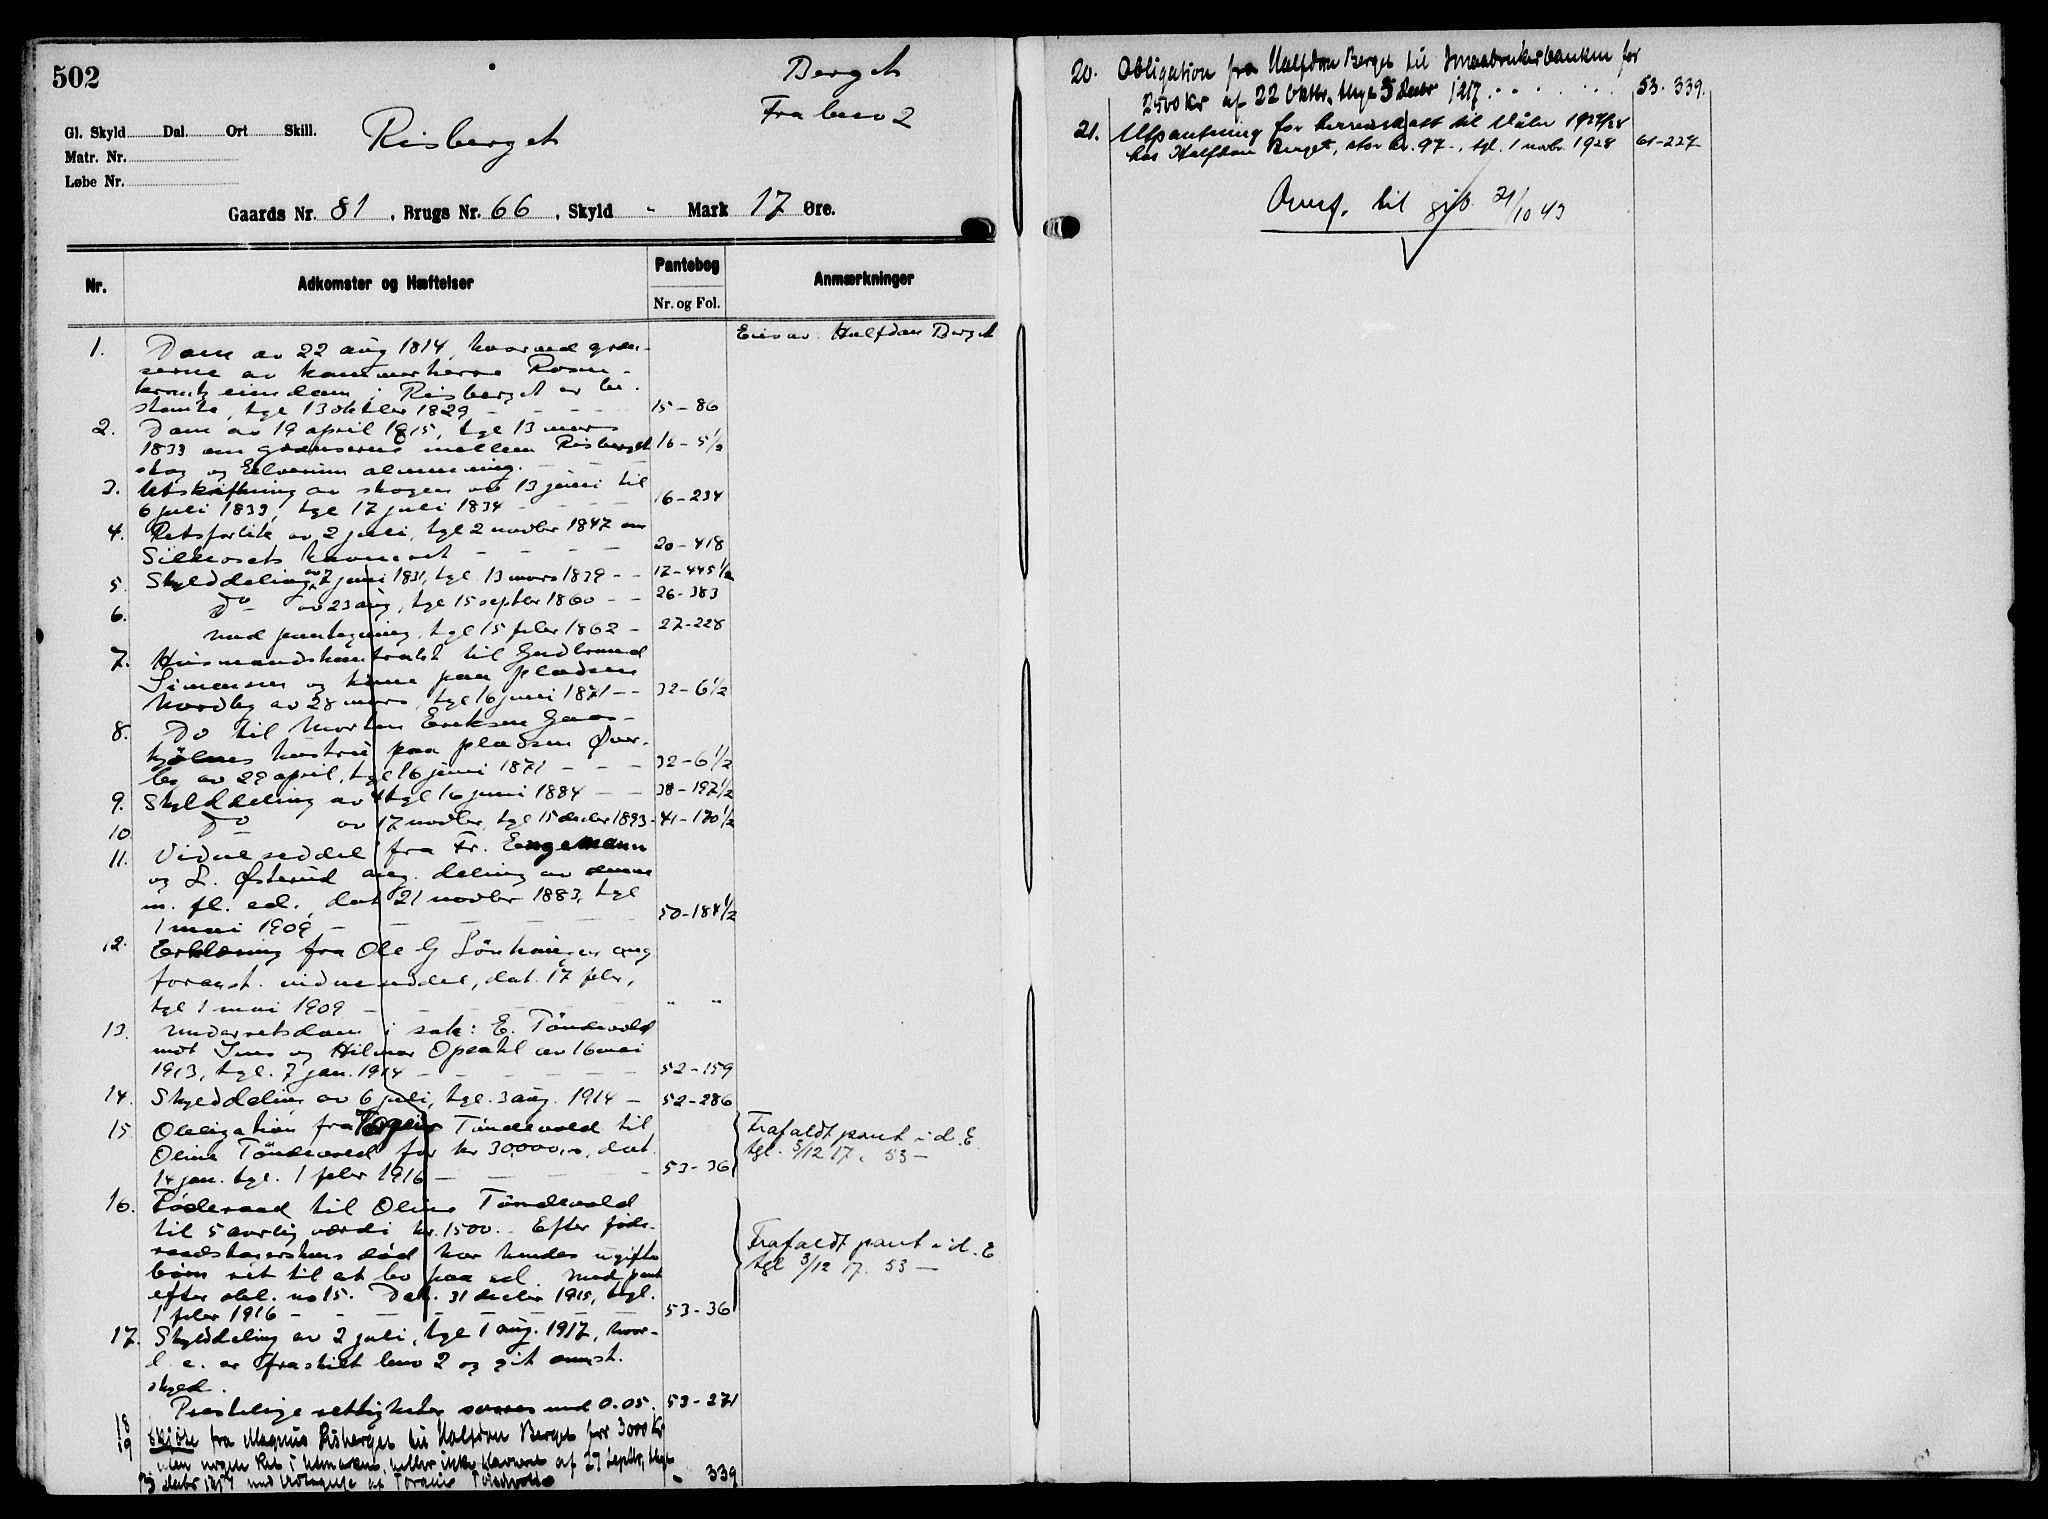 502
Berget
Fra bno 2
Gl. Skyld Dal. Ort Skill.
Risberget
Matr. Nr.
Løbe Nr.
Gaards Nr. 81, Brugs Nr. 66, Skyld - Mark 17 Øre.
Nr. Adkomster og Hæftelser Pantebog Nr. og Fol. Anmærkninger
Eies av Halfdan Berget
1. Dom av 22 aug 1814, hvorved græn-
serne av kammerherre Rosen-
krantz eiendom i Risberget er be-
stemte, tgl 13 oktber 1829 - - - 15-86
2. Dom av 19 april 1815, tgl 13 mars
1833 om grænserne mellem Risberget 16-5 1/2
skog og Elverum almenning.
3. Utskiftning av skogen av 13 juni til
6 juli 1833, tgl 17 juli 1834 - - - 16-234
4. Retsforlik av 2 juli, tgl 2 novbr 1847 om
havneret - - - 20-418
5. Skylddeling av 7 juni 1831, tgl 13 mars 1839 - - 17-445 1/2
6. Do av 23 aug, tgl 15 septbr 1860 - - 26-383
med paategning, tgl 15 febr 1862 - 27-228
7. Husmandskontrakt til Gudbrand
Simonsen og kone paa pladsen
Nordby av 28 mars, tgl 16 juni 1871 - - 32-6 1/2
8. Do til Morten Eriksen Gaas-
hustru paa pladsen Øver-
by av 29 april, tgl 16 juni 1871 - - - 32-6 1/2
9. Skylddeling av 4 tgl 16 juni 1884 - - 38-197 1/2
10. Do av 17 novbr, tgl 15 decbr 1893 - 41-170 1/2
11. Vidneseddel fra Fr. Engemann
og L. Østerud ang. deling av denne
m. fl. ed., dat 21 novbr 1883, tgl
1 mai 1909 - - - 50-184 1/2
12. Erklæring fra Ole G ang
foranst. vidneseddel, dat. 17 febr,
tgl 1 mai 1909 - - - " "
13. Underretsdom i sak: E. Töndevold
mot Jens og Hilmar Opsahl av 16 mai
1913, tgl. 7 jan. 1914 - - - 52-159
14. Skylddeling av 6 juli, tgl. 3 aug. 1914 - 52-286
15. Obligation fra Töndevold til
Oline Töndevold for kr 30,000,-, dat.
14 jan. tgl. 1 febr 1916 - - - 53-36
Frafaldt pant i d. E
tgl. 3/12 17. 53 -
16. Föderaad til Oline Töndevold
til 5 aarlig værdi kr. 1500.- Efter föde-
raadstagerskens död har hendes ugifte
börn ret til at bo paa ed. Med pant
efter obl. no 15. Dat. 31 decbr 1915, tgl.
1 febr 1916 - - - 53-36
Frafaldt pant i d. E
tgl 3/12 17. 53 -
17. Skylddeling av 2 juli, tgl 1 aug. 1917, hvor-
e. er fraskilt bno 2 og git anmst.
skyld.
Præstelige rettigheter svares med 0.05. 53-271
18
19 Skjöte fra Magnus Risberget til Halfdan Berget for 3000 Kr
uten nogen Ret i Utmarken, heller ikke Havneret af 27 Septbr, thgl
3 Decbr 1917 med Vedtagelse af Tordvold - 339
20. Obligation fra Halfdan Berget til Smaabrukerbanken for
2500 Kr af 22 Oktbr, thgl 3 Decbr 1917. . . . 53-339.
21. Utpantning for herredsskatt til Våler 1927/28
hos Halfdan Berget, stor kr. 97.-, tgl. 1 novbr. 1928 61-227
Overf. til 21/10 43